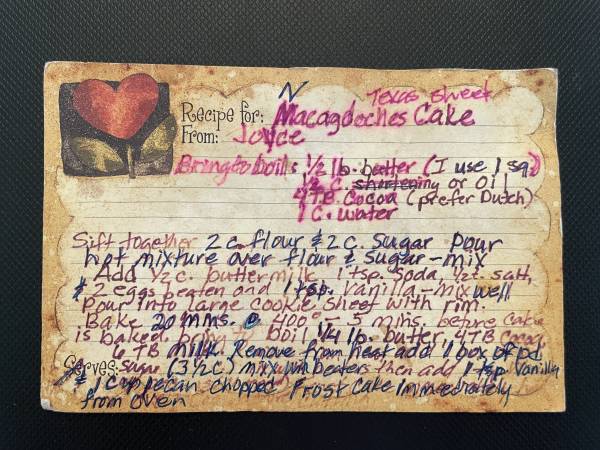 N
Texas Sheet
Recipe for: Macagdoches Cake
From: Joyce
Bring to boil: 1/2 lb. butter (I use 1 sq.)
1/2 c. shortening or oil
4 TB. Cocoa (prefer Dutch)
1 c. water
Sift together 2 c. flour & 2 c. sugar pour
hot mixture over flour & sugar-mix
Add 1/2 c. buttermilk, 1 tsp. soda, 1/2 t. salt,
& 2 eggs beaten and 1 tsp. vanilla-mix well
Pour into large cookie sheet with rim.
Bake 20 mins. @ 400° - 5 mins. before cake
is baked, bring boil 1/4 lb. butter, 4 TB Cocoa
6 TB milk. Remove from heat add 1 box of pd.
Serves: sugar (3 1/2 c) mix w/ beaters then add 1 tsp vanilla
& 1 cup pecan chopped Frost cake immediately
from oven